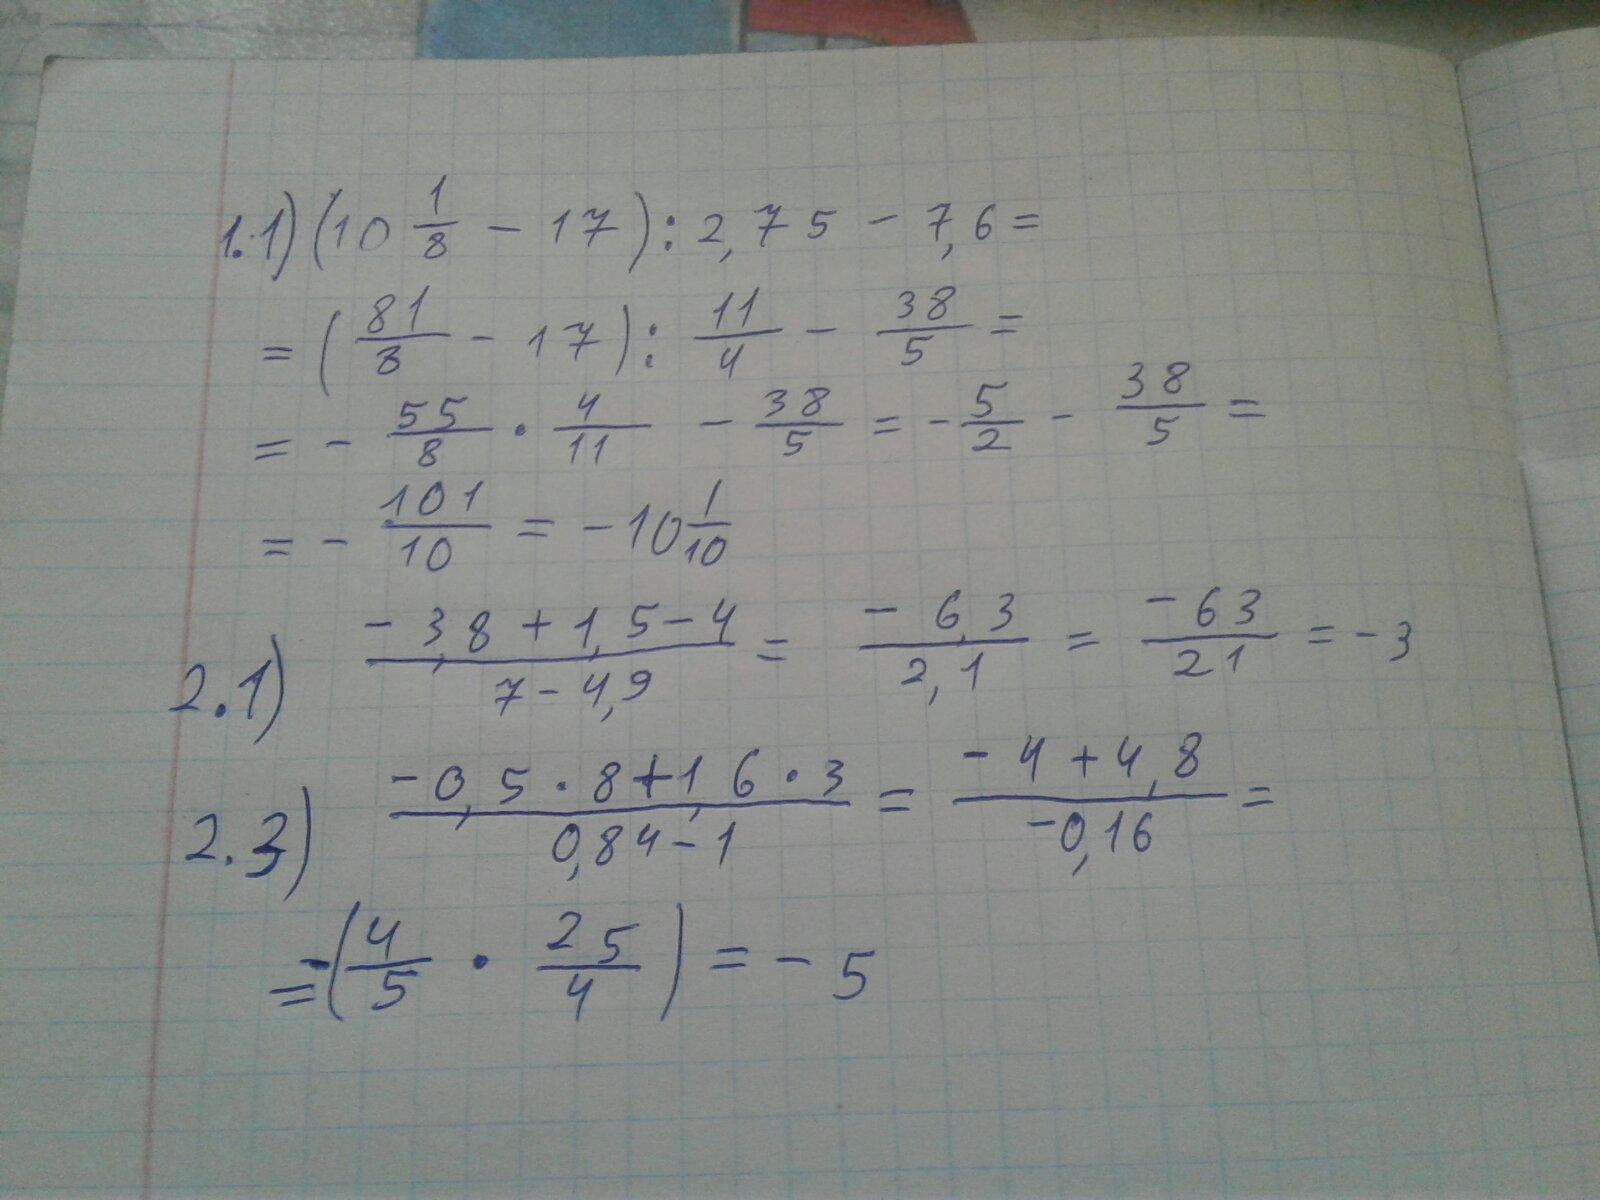 1.1) (10 1/8 - 17) : 2,75 - 7,6 =
= (81/8 - 17) : 11/4 - 38/5 =
= - 55/8 · 4/11 - 38/5 = - 5/2 - 38/5 =
= - 101/10 = - 10 1/10
2.1) (-3,8 + 1,5 - 4)/(7 - 4,9) = (-6,3)/(2,1) = (-63)/(21) = -3
2.3) (-0,5 · 8 + 1,6 · 3)/(0,84 - 1) = (-4 + 4,8)/(-0,16) =
= -(4/5 · 25/4) = -5